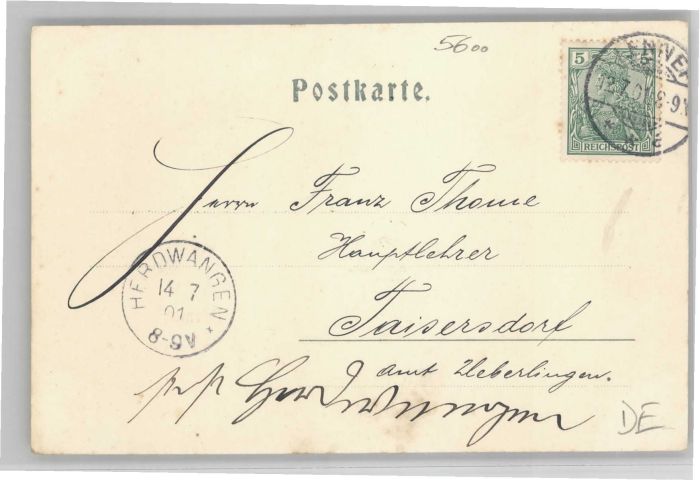 5600
Postkarte.
5
REICHSPOST
12.7.01.8-9V
Herrn Franz Thome
Hauptlehrer
Taisersdorf
Amt Ueberlingen.
HERDWANGEN
14 7
01
8-9V
Herdwangen
DE